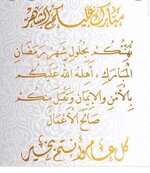 مبارك عليكم الشهر
نهنئكم بحلول شهر رمضان
المبارك ، أهله الله عليكم
بالأمن والإيمان وتقبل منكم
صالح الأعمال
كل عام وأنتم بخير